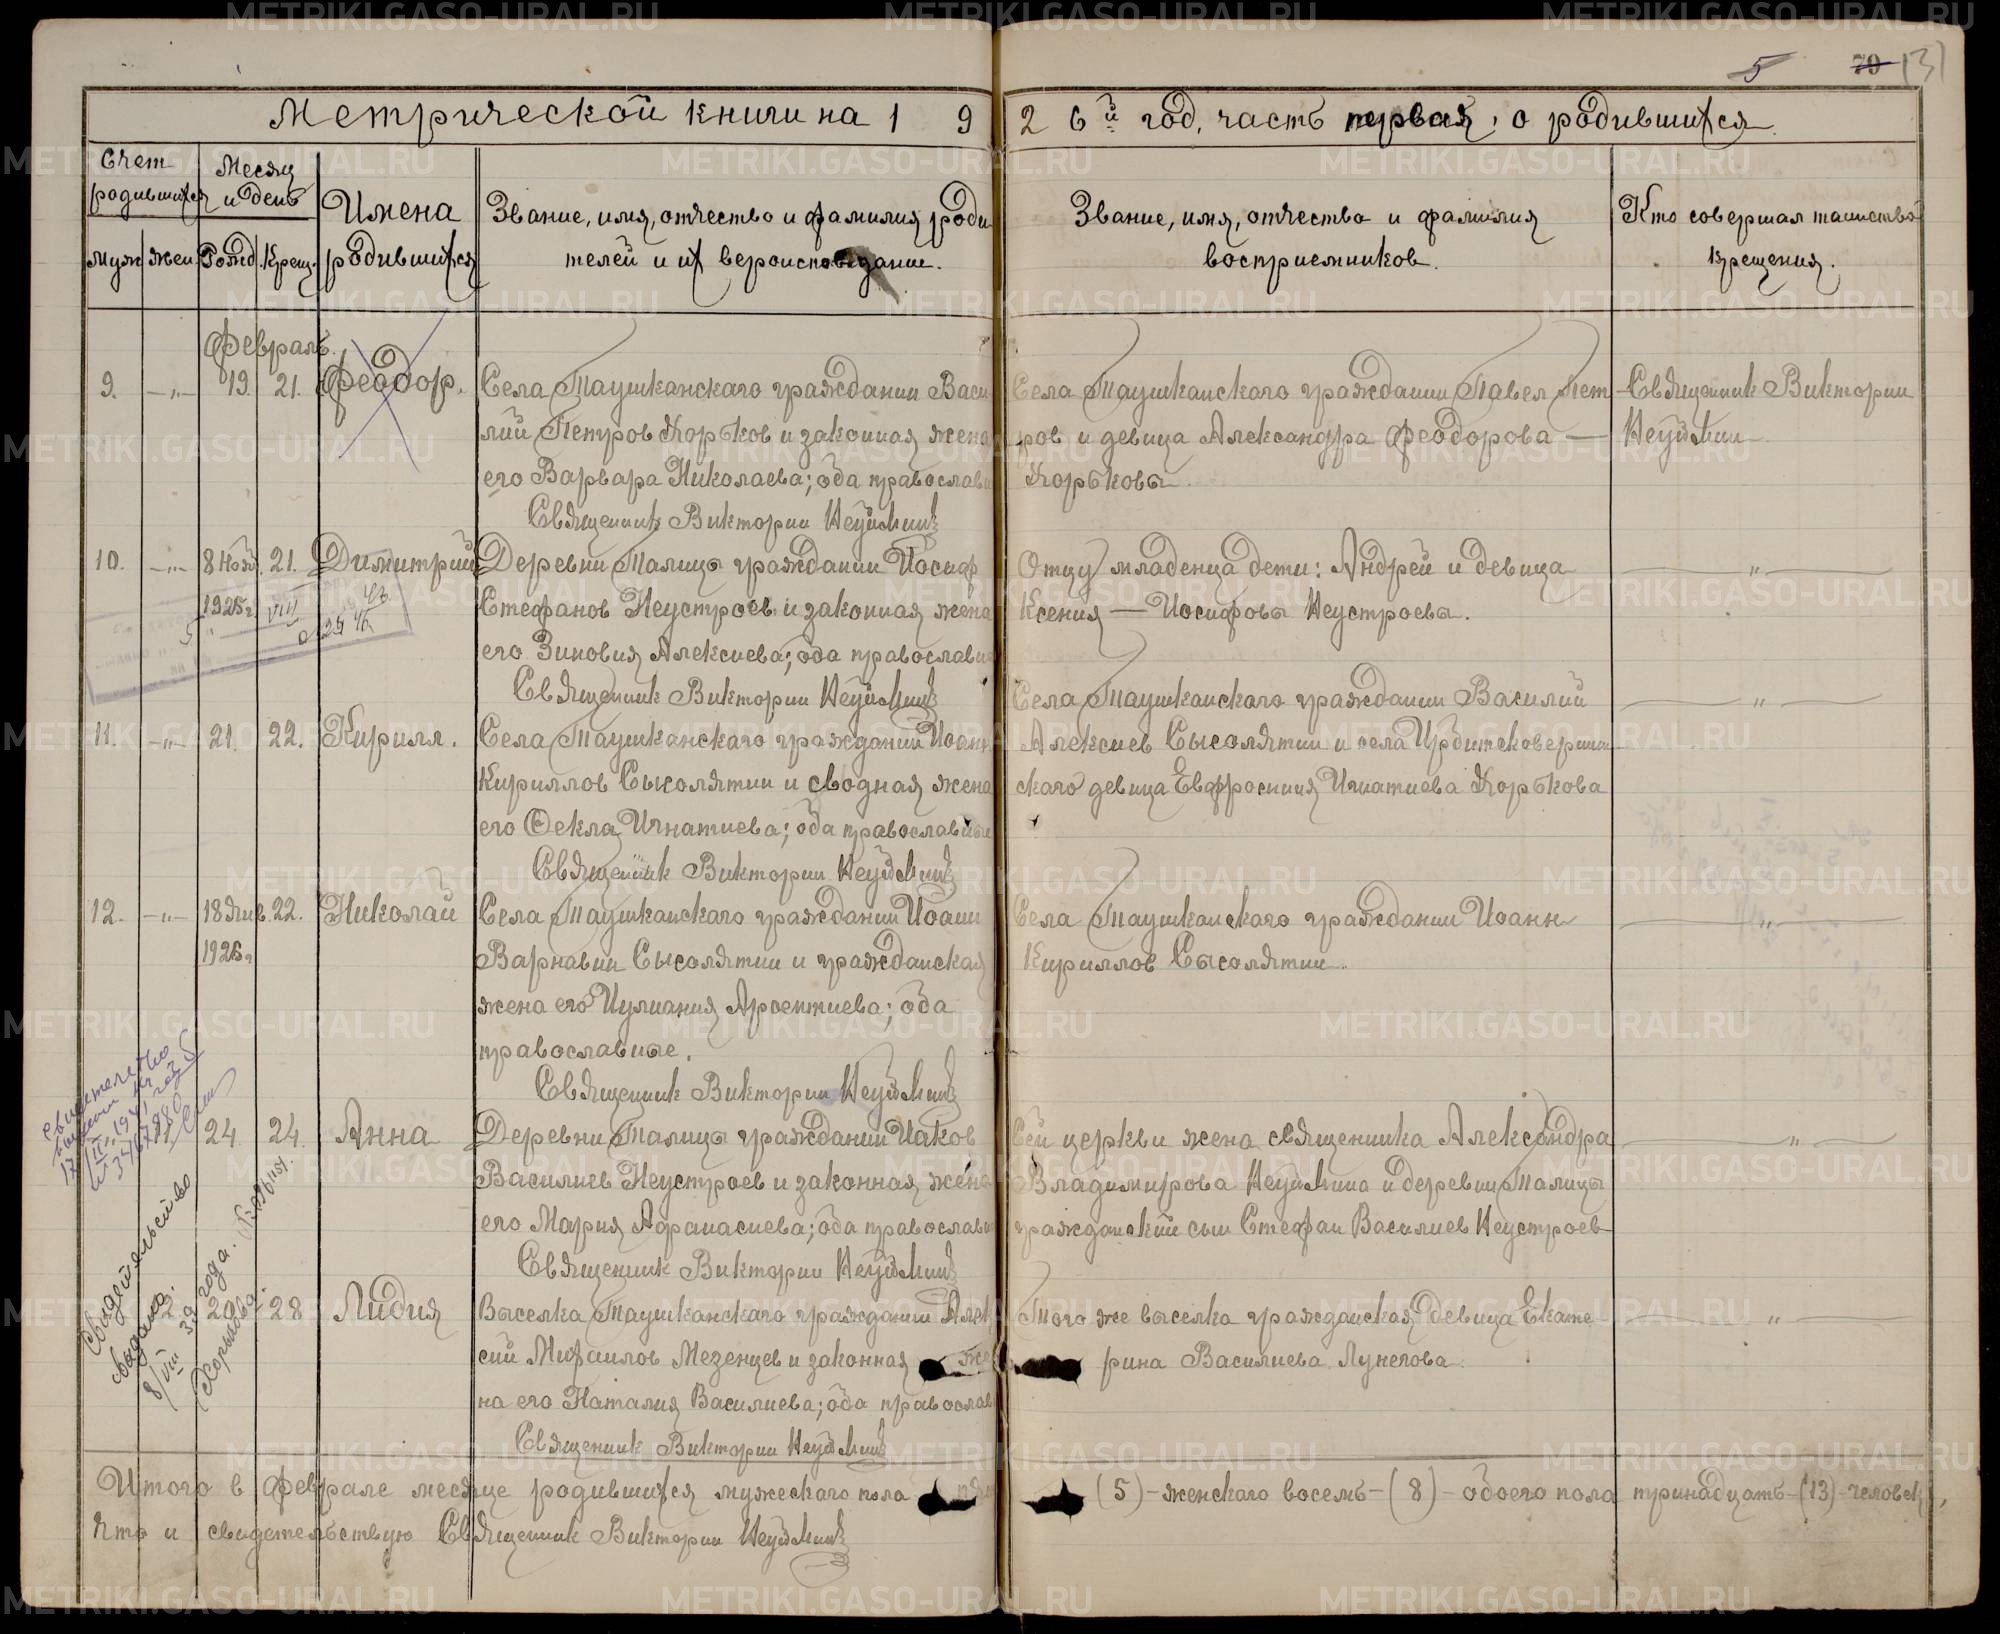 5 79 131
Метрической книги на 1 9 2 6й год, часть первая, о родившихся
Счет родившихся
Месяц и день
Имена родившихся
Звание, имя, отчество и фамилия роди-
телей и их вероисповедание.
Звание, имя, отчество и фамилия
восприемников.
Кто совершал таинство
крещения.
муж. жен. Рожд. Крещ.
Февраль.
9. -"- 19. 21. Феодор.
Села Таушканскаго гражданин Васи-
лий Петров Хорьков и законная жена
его Варвара Николаева; оба православн
Священник Викторин Неуймин
Села Таушканскаго гражданин Павел Пет-
ров и девица Александра Феодорова —
Хорьковы.
Священник Викторин
Неуймин
10. -"- 8 Нояб. 1925 г. 21. Димитрий
Деревни Талицы гражданин Иосиф
Стефанов Неустроев и законная жена
его Зиновия Алексиева; оба православн
Священник Викторин Неуймин
Отцу младенца дети: Андрей и девица
Ксения — Иосифовы Неустроевы.
"
11. -"- 21. 22. Кирилл.
Села Таушканскаго гражданин Иоанн
Кириллов Сысолятин и сводная жена
его Фекла Игнатиева; оба православные
Священник Викторин Неуймин
Села Таушканскаго гражданин Василий
Алексиев Сысолятин и села Ирбитсковершин-
скаго девица Евфросиния Игнатиева Хорькова
"
12. -"- 18 Янв. 1926 г. 22. Николай
Села Таушканскаго гражданин Иоанн
Варнавин Сысолятин и гражданская
жена его Иулиания Арсентиева; оба
православные.
Священник Викторин Неуймин
Села Таушканскаго гражданин Иоанн
Кириллов Сысолятин.
"
11 24 24. Анна
Деревни Талицы гражданин Иаков
Василиев Неустроев и законная жена
его Мария Афанасиева; оба православн
Священник Викторин Неуймин
Сей церкви жена священника Александра
Владимирова Неуймина и деревни Талицы
гражданский сын Стефан Василиев Неустроев
"
12 28 Лидия
Выселка Таушканскаго гражданин Алек-
сий Михаилов Мезенцев и законная же-
на его Наталия Василиева; оба православ
Священник Викторин Неуймин
Того же выселка гражданская девица Екате-
рина Василиева Лунегова.
"
Свидетельство
выдано.
8/VIII 39 года.
Итого в феврале месяце родившихся мужескаго пола (5) - женскаго восемь - (8) - обоего пола тринадцать - (13) - человек,
что и свидетельствую Священник Викторин Неуймин
METRIKI.GASO-URAL.RU